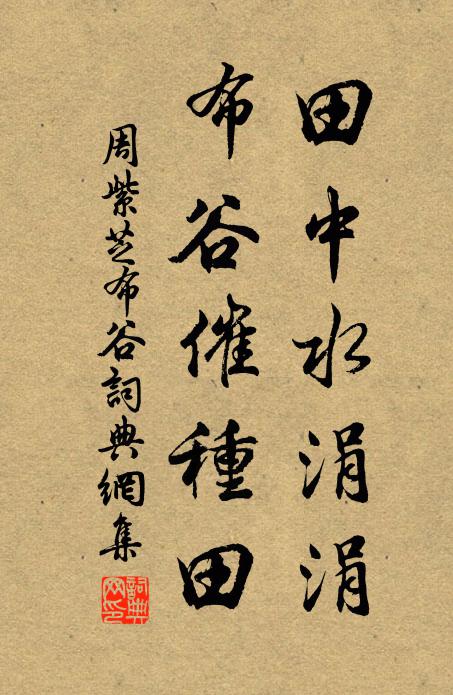 田中水涓涓
布谷催種田
周紫芝布谷詞典網集
詞典网印